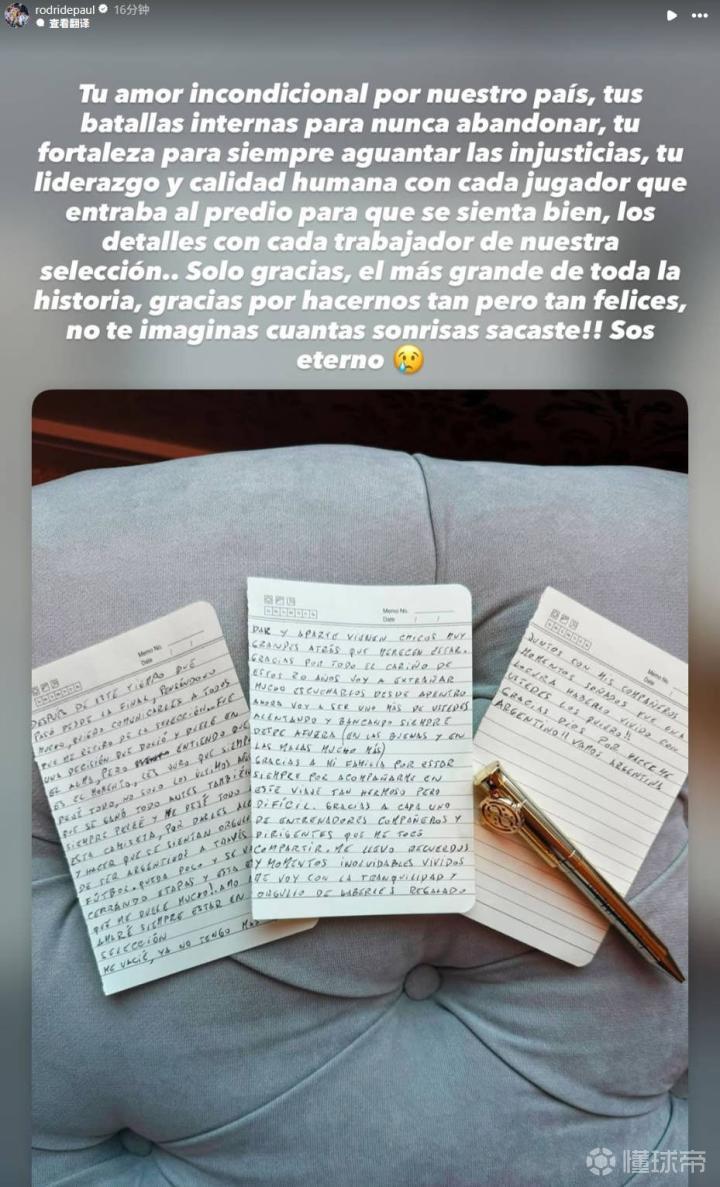 rodridepaul 16分钟
查看翻译
Tu amor incondicional por nuestro país, tus
batallas internas para nunca abandonar, tu
fortaleza para siempre aguantar las injusticias, tu
liderazgo y calidad humana con cada jugador que
entraba al predio para que se sienta bien, los
detalles con cada trabajador de nuestra
selección.. Solo gracias, el más grande de toda la
historia, gracias por hacernos tan pero tan felices,
no te imaginas cuantas sonrisas sacaste!! Sos
eterno 😢
Memo No.
Date / /
DESPUÉS DE ESTE TIEMPO QUE
PASÓ DESDE LA FINAL, PENSÁNDOLO
MUCHO, QUIERO COMUNICARLES A TODOS
QUE ME RETIRO DE LA SELECCIÓN. FUE
UNA DECISIÓN QUE DOLIÓ Y DUELE EN
EL ALMA, PERO ENTIENDO QUE
ES EL MOMENTO. LES JURO QUE SIEMPRE
DEJÉ TODO, NO SOLO LOS ÚLTIMOS AÑOS
QUE SE GANÓ TODO ANTES TAMBIÉN
SIEMPRE PELEÉ Y ME DEJÉ TODO
ESTA CAMISETA, POR DARLES
Y HACER QUE SE SIENTAN
DE SER ARGENTINOS A TRAVÉS
FÚTBOL. QUEDA POCO Y SE VA
CERRANDO ETAPAS Y ESTA
QUE ME DUELE MUCHO. AMO
AMARÉ SIEMPRE ESTAR EN
SELECCIÓN
ME VACIÉ, YA NO TENGO
Memo No.
Date / /
DAR Y APARTE VIENEN CHICOS MUY
GRANDES ATRÁS QUE MERECEN ESTAR.
GRACIAS POR TODO EL CARIÑO DE
ESTOS 20 AÑOS VOY A EXTRAÑAR
MUCHO ESCUCHARLOS DESDE ADENTRO.
AHORA VOY A SER UNO MÁS DE USTEDES
ALENTANDO Y BANCANDO SIEMPRE
DESDE AFUERA (EN LAS BUENAS Y EN
LAS MALAS MUCHO MÁS)
GRACIAS A MI FAMILIA POR ESTAR
SIEMPRE POR ACOMPAÑARME EN
ESTE VIAJE TAN HERMOSO PERO
DIFÍCIL. GRACIAS A CADA UNO
DE ENTRENADORES COMPAÑEROS Y
DIRIGENTES QUE ME TOCÓ
COMPARTIR. ME LLEVO RECUERDOS
Y MOMENTOS INOLVIDABLES VIVIDOS
ME VOY CON LA TRANQUILIDAD Y
ORGULLO DE HABERLES REGALADO
Memo No.
Date /
JUNTOS CON MIS COMPAÑEROS
MOMENTOS SOÑADOS QUE UNA
LOCURA HABERLO VIVIDO CON
USTEDES LOS QUIERO!!
GRACIAS DIOS POR HACERME
ARGENTINO!! VAMOS ARGENTINA
懂球帝